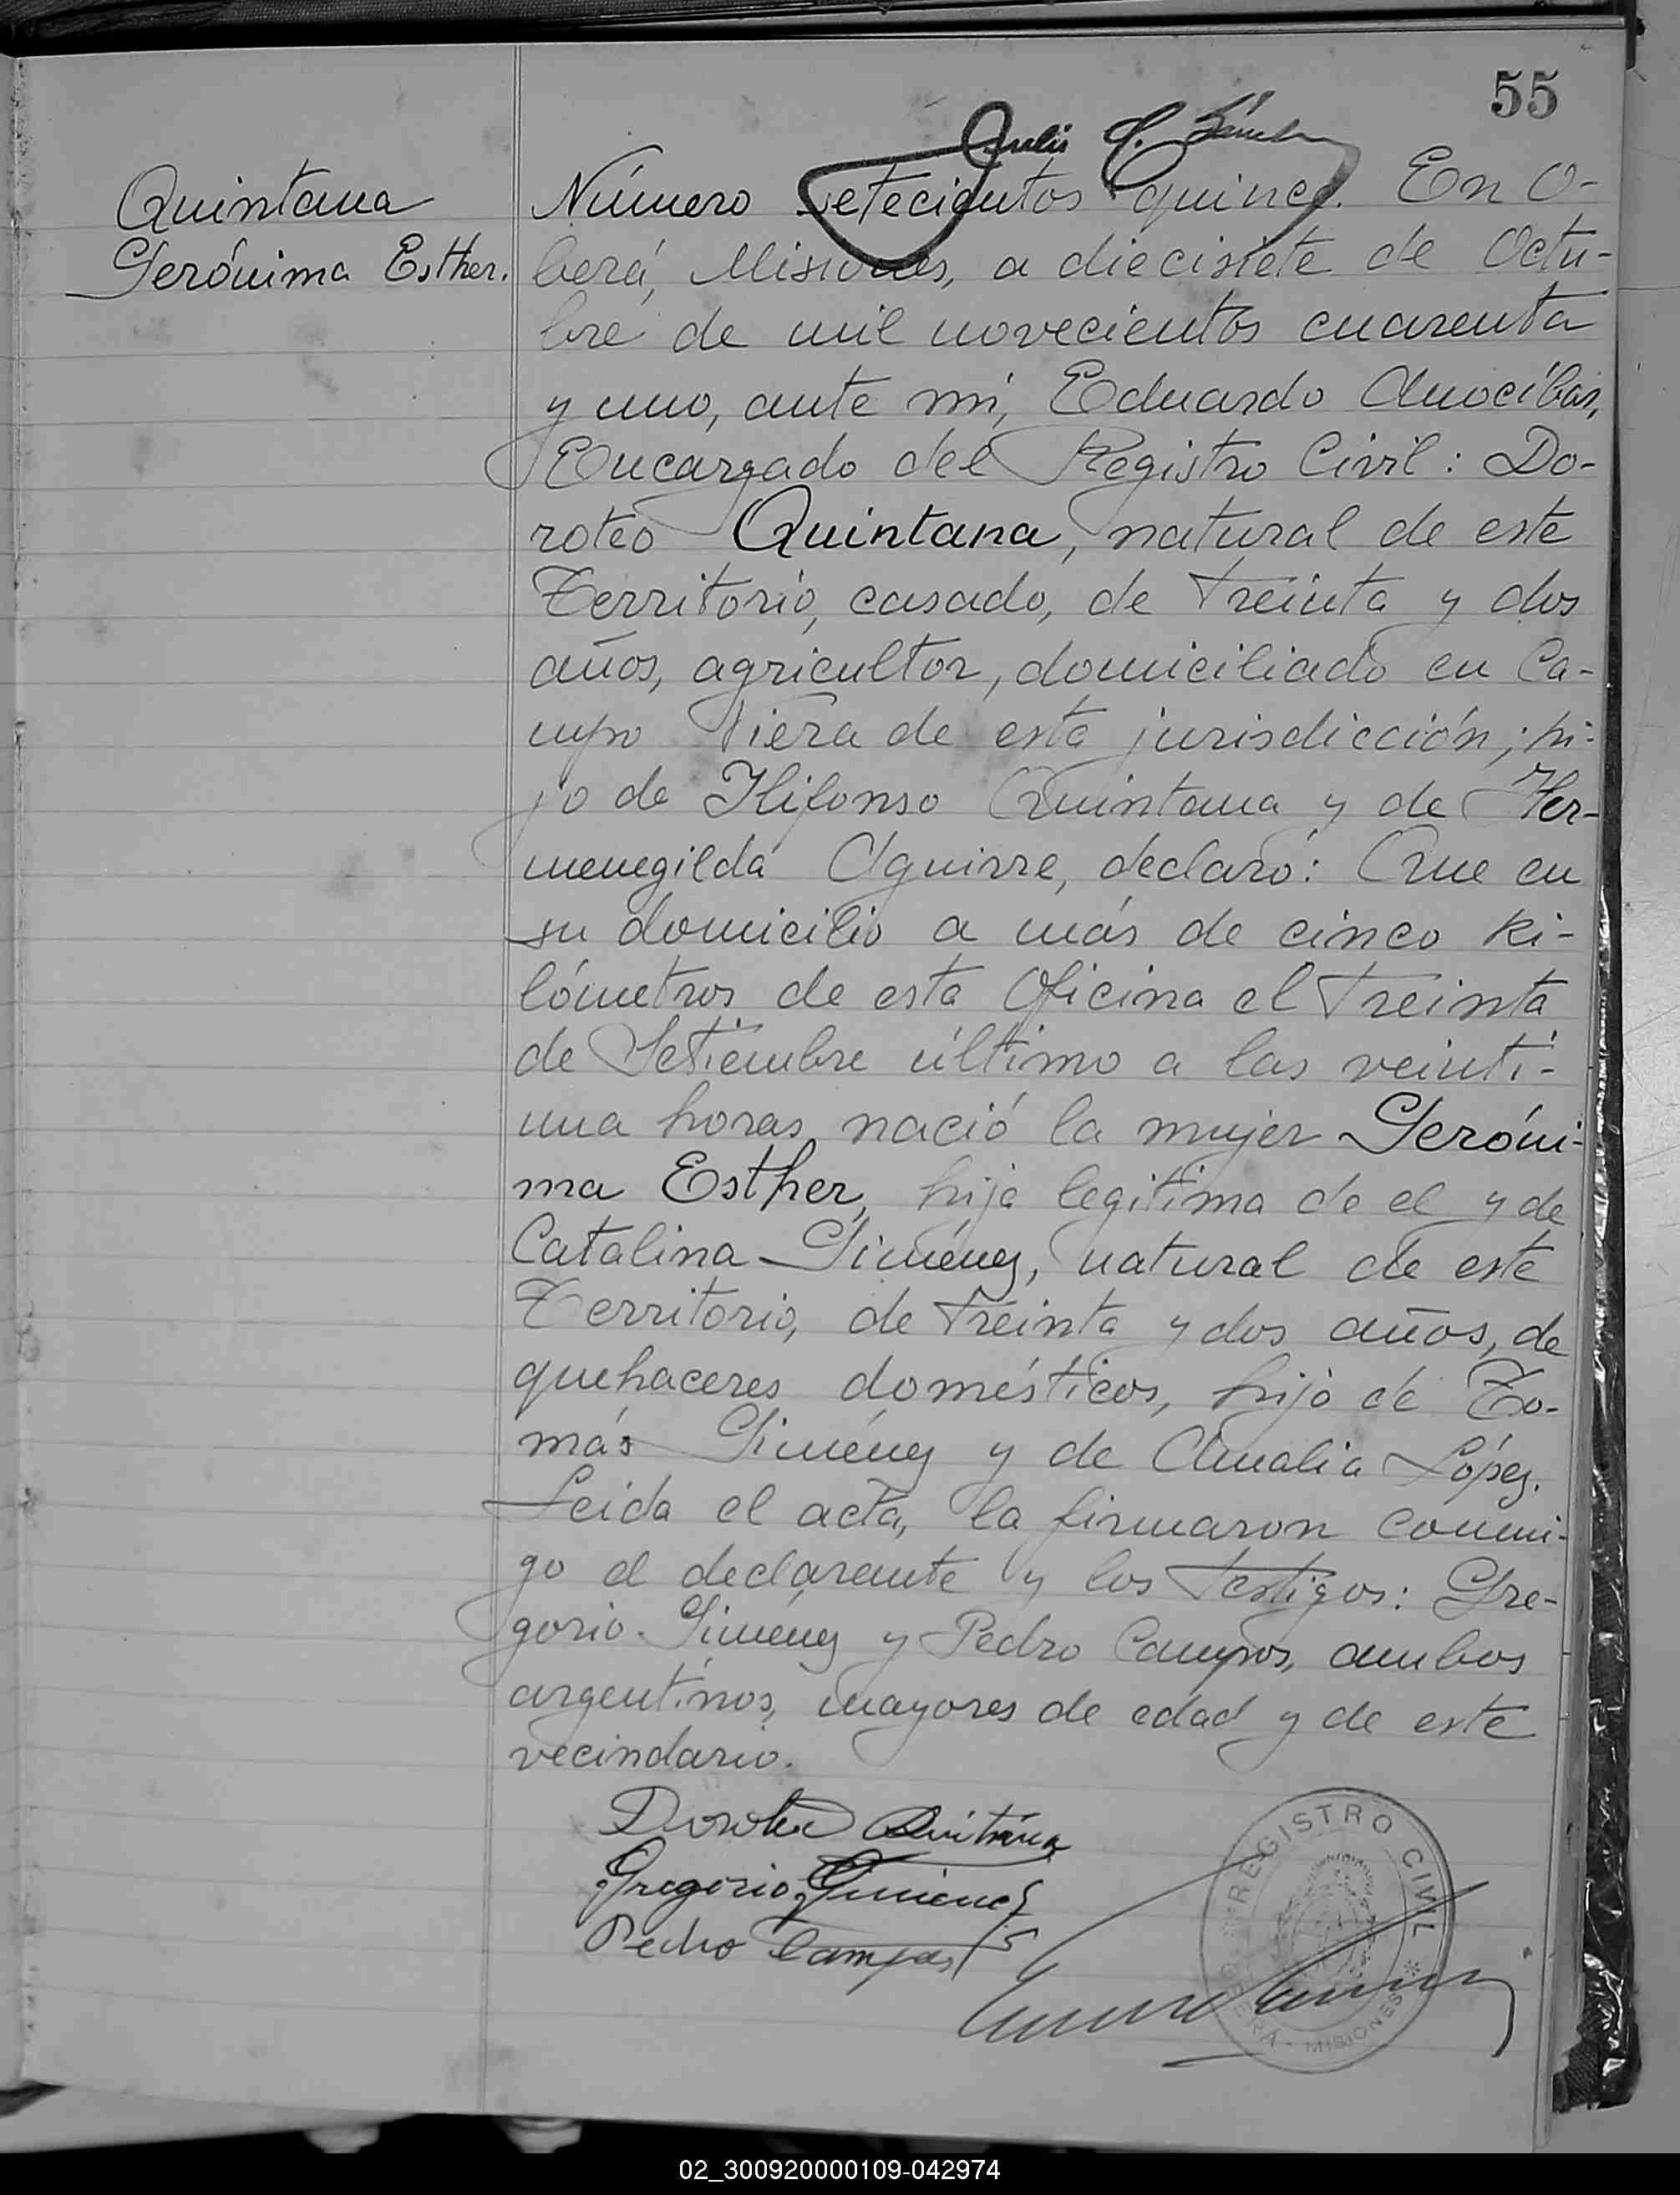 55
Quintana
Gerónima Esther.
Número setecientos quince. En O-
berá, Misiones, a diecisiete de Octu-
bre de mil novecientos cuarenta
y uno, ante mí, Eduardo Anocíbar,
Encargado del Registro Civil: Do-
roteo Quintana, natural de este
Territorio, casado, de treinta y dos
años, agricultor, domiciliado en Ca-
mpo Viera de esta jurisdicción; hi-
jo de Ilifonso Quintana y de Her-
menegilda Aguirre, declaró: Que en
su domicilio a más de cinco ki-
lómetros de esta Oficina el treinta
de Setiembre último a las veinti-
una horas nació la mujer Geróni-
ma Esther, hija legitima de el y de
Catalina Giménez, natural de este
Territorio, de treinta y dos años, de
quehaceres domésticos, hija de To-
más Giménez y de Amalia López.
Leida el acta, la firmaron conmi-
go el declarante y los testigos: Gre-
gorio Giménez y Pedro Campos, ambos
argentinos, mayores de edad y de este
vecindario.
Doroteo Quintana
Gregorio Gimenez
Pedro Campos
REGISTRO CIVIL
OBERÁ - MISIONES
02_300920000109-042974